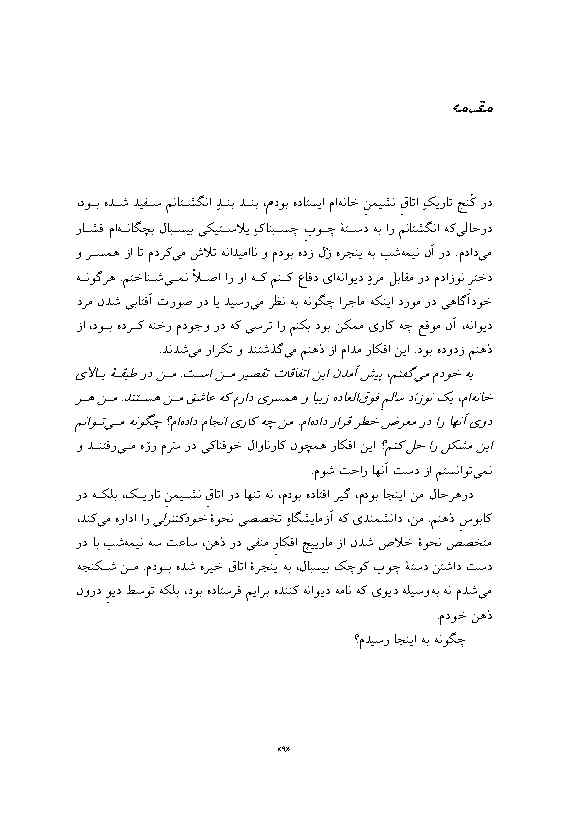 مقدمه
در کُنجِ تاریکِ اتاقِ نشیمنِ خانه‌ام ایستاده بودم، بند بندِ انگشتانم سفید شده بود،
درحالی‌که انگشتانم را به دستهٔ چوبِ چسبناکِ پلاستیکی بیسبال بچگانه‌ام فشار
می‌دادم. در آن نیمه‌شب به پنجره زل زده بودم و ناامیدانه تلاش می‌کردم تا از همسر و
دختر نوزادم در مقابل مردِ دیوانه‌ای دفاع کنم که او را اصلاً نمی‌شناختم. هرگونه
خودآگاهی در مورد اینکه ماجرا چگونه به نظر می‌رسید یا در صورت آفتابی شدن مرد
دیوانه، آن موقع چه کاری ممکن بود بکنم را ترسی که در وجودم رخنه کرده بود، از
ذهنم زدوده بود. این افکار مدام از ذهنم می‌گذشتند و تکرار می‌شدند.
به خودم می‌گفتم، پیش آمدن این اتفاقات تقصیر من است. من در طبقهٔ بالای
خانه‌ام، یک نوزاد سالمِ فوق‌العاده زیبا و همسری دارم که عاشق من هستند. من هر
دوی آنها را در معرض خطر قرار داده‌ام. من چه کاری انجام داده‌ام؟ چگونه می‌توانم
این مشکل را حل کنم؟ این افکار همچون کاراوال خوفناکی در مغزم رژه می‌رفتند و
نمی‌توانستم از دست آنها راحت شوم.
درهرحال من اینجا بودم، گیر افتاده بودم، نه تنها در اتاقِ نشیمنِ تاریک، بلکه در
کابوسِ ذهنم. من، دانشمندی که آزمایشگاهِ تخصصی نحوهٔ خودکنترلی را اداره می‌کند،
متخصصِ نحوهٔ خلاص شدن از مارپیچِ افکارِ منفی در ذهن، ساعت سه نیمه‌شب با در
دست داشتن دستهٔ چوب کوچک بیسبال، به پنجرهٔ اتاق خیره شده بودم. من شکنجه
می‌شدم نه به‌وسیله دیوی که نامه دیوانه کننده برایم فرستاده بود، بلکه توسط دیوِ درون
ذهن خودم.
چگونه به اینجا رسیدم؟